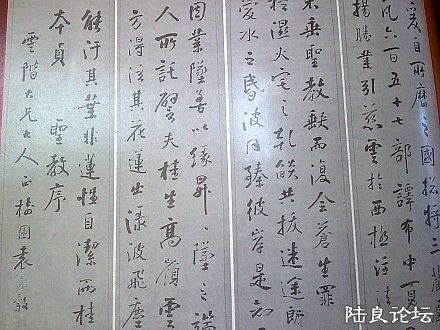 爰自所歷之國揔将三藏
凡六百五十七部譯布中夏
揚勝業引慈雲於西極注法
東垂聖教缺而復全蒼生罪
濕火宅之乾燄共拔迷途朗
愛水之昏波同臻彼岸是知
因業墜善以緣昇〻墜之端
人所託譬夫桂生高嶺雲
方得泫其花蓮出淥波飛塵
能汙其葉非蓮性自潔而桂
本貞 聖教序
雲階大兄大人正 圃袁嘉穀
陆良论坛